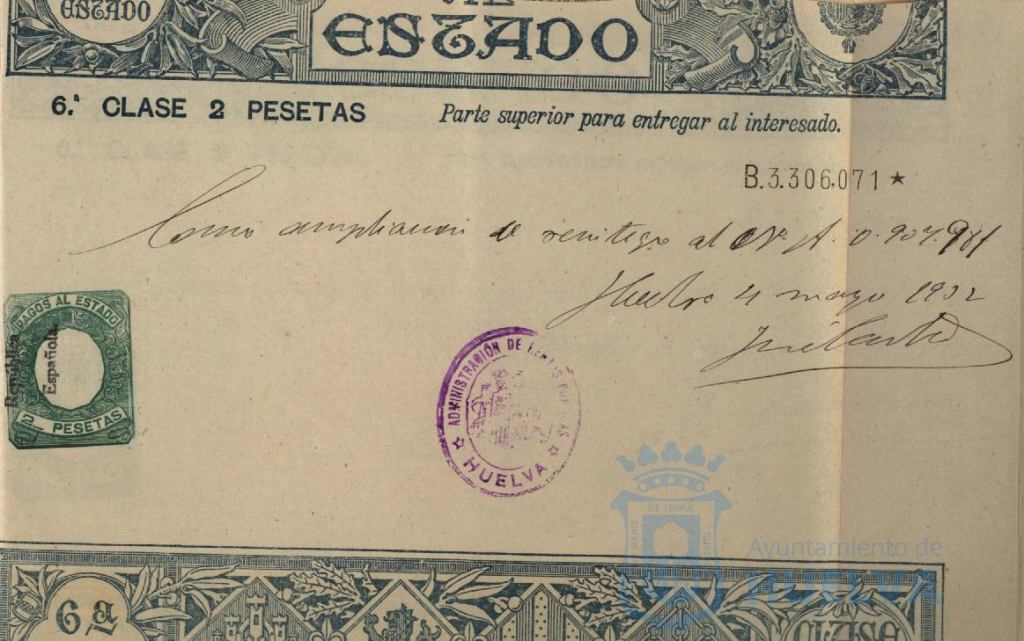 ESTADO
ESTADO
6.ª CLASE 2 PESETAS
Parte superior para entregar al interesado.
B.3.306,071 ★
Como ampliacion de reintegro al Nº A. 0.907.981
Huelva 4 mayo 1932
PAGOS AL ESTADO
República
Española.
2 PESETAS
ADMINISTRACIÓN DE RENTAS PÚBLICAS
HUELVA
Ayuntamiento de
HUELVA
6ª
CLASE